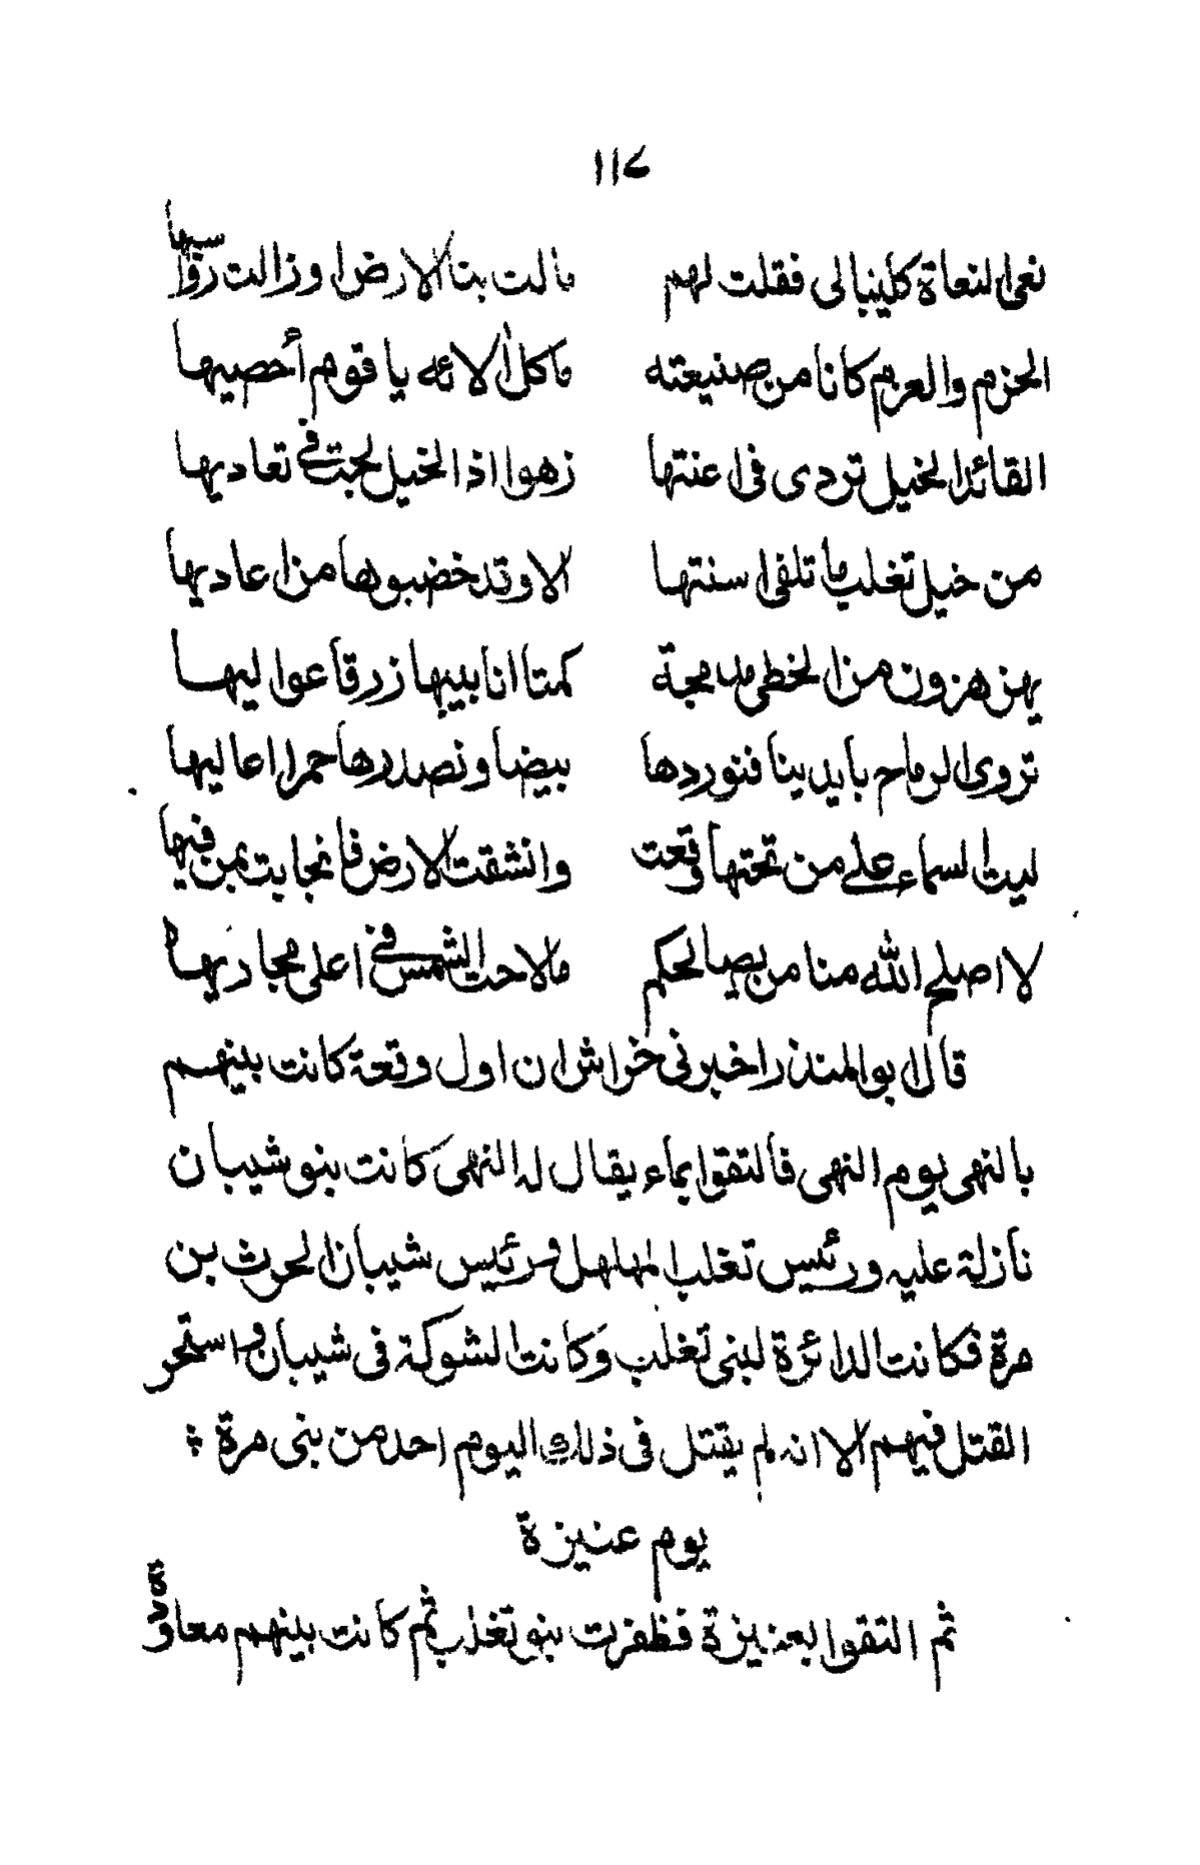 ١١٧
نعى النعاة كليبا لى فقلت لهم مالت بنا الارض او زالت رواسيها
الحزم والعزم كانا من صنيعته ما كل الائه يا قوم أحصيها
القائد الخيل تردى فى اعنتها زهوا اذا الخيل لجت فى تعاديها
من خيل تغلب ما تلفى اسنتها الا وقد خضبوها من اعاديها
يهزهزون من الخطى مدمجة كمتا انابيبها زرقا عواليها
تروى الرماح بايدينا فنوردها بيضا ونصدرها حمرا اعاليها
ليت السماء على من تحتها وقعت وانشقت الارض فانجابت بمن فيها
لا اصلح الله منا من يصالحكم ما لاحت الشمس فى اعلى مجاريها
قال ابو المنذر اخبرنى خراش ان اول وقعة كانت بينهم
بالنهى يوم النهى فالتقوا بماء يقال له النهى كانت بنو شيبان
نازلة عليه ورئيس تغلب المهلهل ورئيس شيبان الحرث بن
مرة فكانت الدائرة لبنى تغلب وكانت الشوكة فى شيبان واستحر
القتل فيهم الا انه لم يقتل فى ذلك اليوم احد من بنى مرة :
يوم عنيزة
ثم التقوا بعنيزة فظفرت بنو تغلب ثم كانت بينهم معاودة